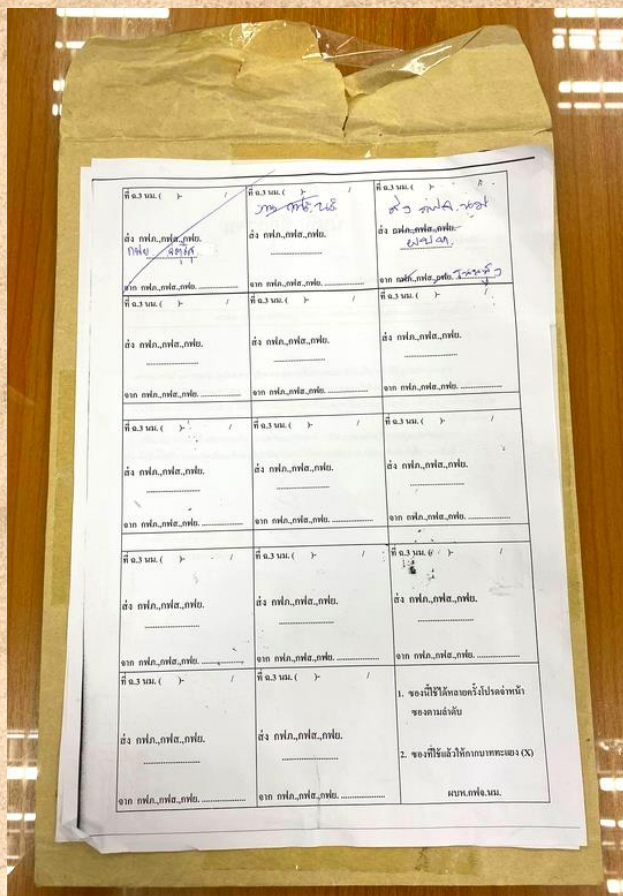 ที่ ฉ.3 นม. ( )- /
ส่ง กฟภ.,กฟส.,กฟย.
กฟย
จาก กฟภ.,กฟส.,กฟย.
ที่ ฉ.3 นม. ( )- /
ส่ง กฟภ.,กฟส.,กฟย.
จาก กฟภ.,กฟส.,กฟย.
ที่ ฉ.3 นม. ( )- /
ส่ง
ส่ง กฟภ.,กฟส.,กฟย.
จาก กฟภ.,กฟส.,กฟย.
ที่ ฉ.3 นม. ( )- /
ส่ง กฟภ.,กฟส.,กฟย.
จาก กฟภ.,กฟส.,กฟย.
ที่ ฉ.3 นม. ( )- /
ส่ง กฟภ.,กฟส.,กฟย.
จาก กฟภ.,กฟส.,กฟย.
ที่ ฉ.3 นม. ( )- /
ส่ง กฟภ.,กฟส.,กฟย.
จาก กฟภ.,กฟส.,กฟย.
ที่ ฉ.3 นม. ( )- /
ส่ง กฟภ.,กฟส.,กฟย.
จาก กฟภ.,กฟส.,กฟย.
ที่ ฉ.3 นม. ( )- /
ส่ง กฟภ.,กฟส.,กฟย.
จาก กฟภ.,กฟส.,กฟย.
ที่ ฉ.3 นม. ( )- /
ส่ง กฟภ.,กฟส.,กฟย.
จาก กฟภ.,กฟส.,กฟย.
ที่ ฉ.3 นม. ( )- /
ส่ง กฟภ.,กฟส.,กฟย.
จาก กฟภ.,กฟส.,กฟย.
ที่ ฉ.3 นม. ( )- /
ส่ง กฟภ.,กฟส.,กฟย.
จาก กฟภ.,กฟส.,กฟย.
ที่ ฉ.3 นม. ( )- /
ส่ง กฟภ.,กฟส.,กฟย.
จาก กฟภ.,กฟส.,กฟย.
ที่ ฉ.3 นม. ( )- /
ส่ง กฟภ.,กฟส.,กฟย.
จาก กฟภ.,กฟส.,กฟย.
ที่ ฉ.3 นม. ( )- /
ส่ง กฟภ.,กฟส.,กฟย.
จาก กฟภ.,กฟส.,กฟย.
1. ซองนี้ใช้ได้หลายครั้งโปรดจ่าหน้า
ซองตามลำดับ
2. ซองที่ใช้แล้วให้กากบาททะแยง (X)
ผบห.กฟจ.นม.